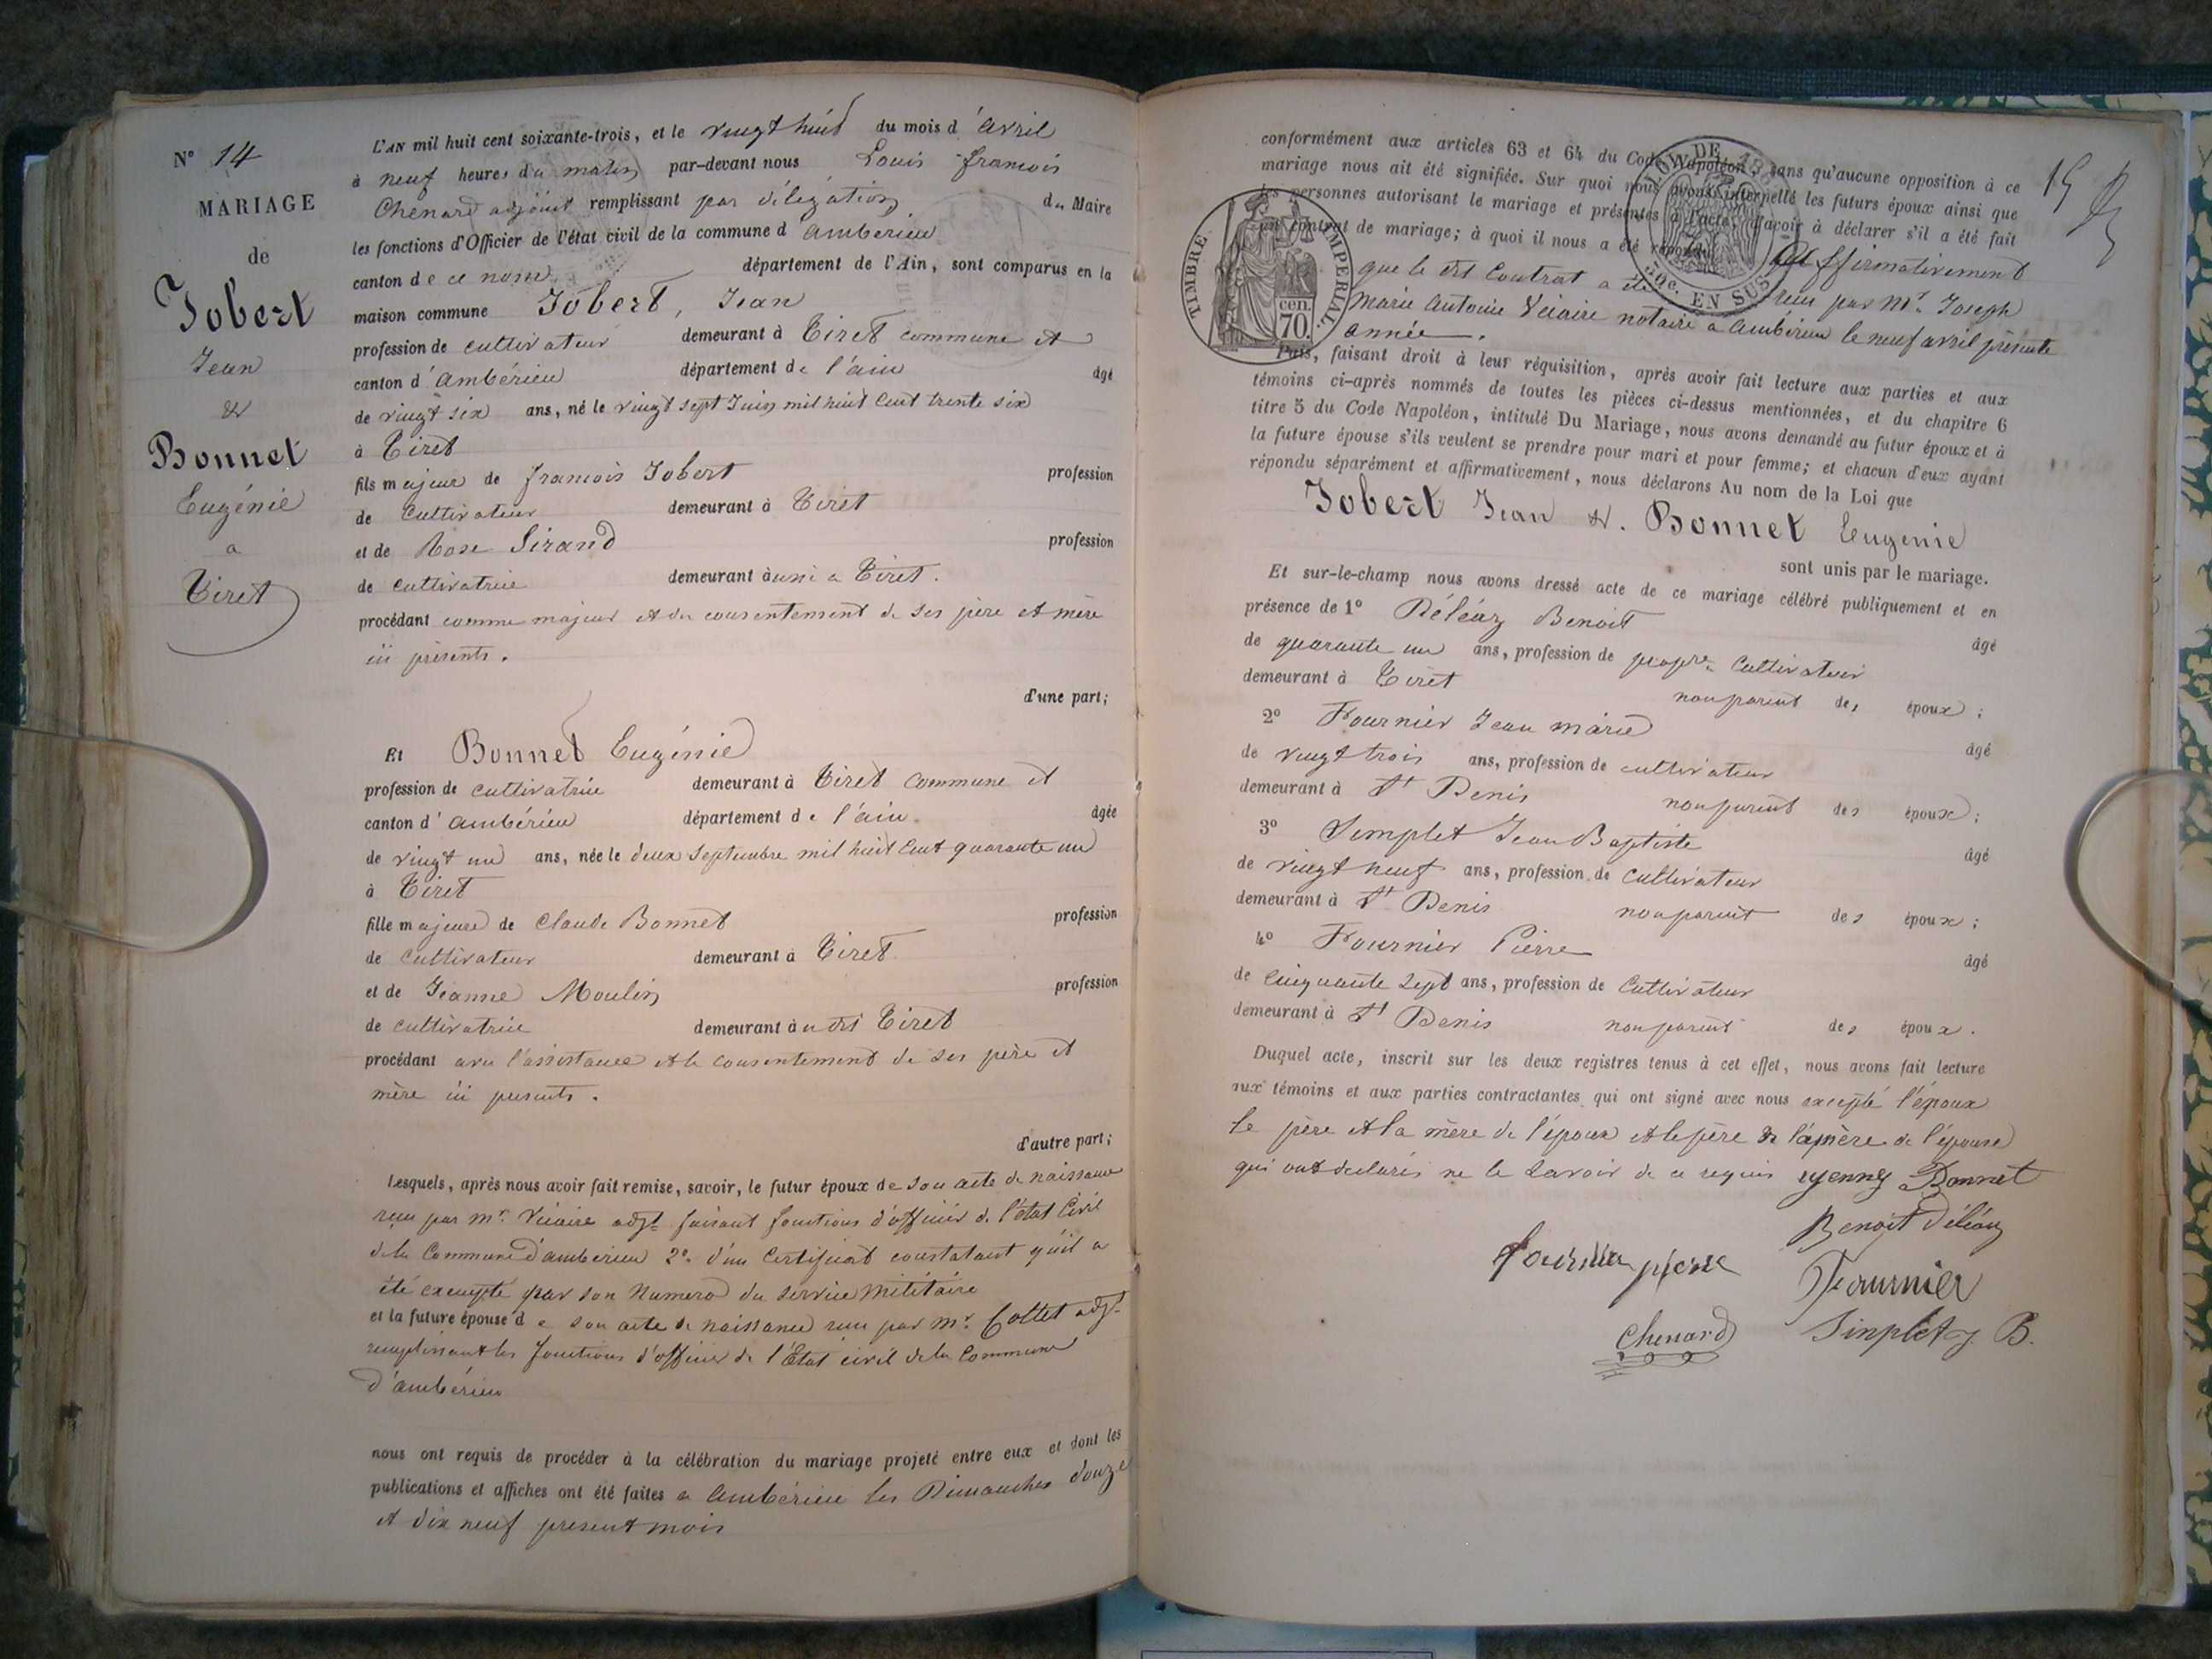 N° 14
MARIAGE
de
Jobert
Jean
&
Bonnet
Eugénie
a
Tiret
L'AN mil huit cent soixante-trois, et le vingt huit du mois d'avril
à neuf heures du matin par-devant nous Louis françois
Chenard adjoint remplissant par délégation du Maire
les fonctions d'Officier de l'état civil de la commune d'ambérieu
canton de ce nom département de l'Ain, sont comparus en la
maison commune Jobert, Jean
profession de cultivateur demeurant à Tiret commune et
canton d'ambérieu département de l'ain âgé
de vingt six ans, né le vingt sept Juin mil huit Cent trente six
à Tiret
fils majeur de françois Jobert profession
de Cultivateur demeurant à Tiret
et de Rose Sirand profession
de cultivatrice demeurant aussi a Tiret.
procédant comme majeur et du consentement de ses père et mère
ici présents.
d'une part;
Et Bonnet Eugénie
profession de cultivatrice demeurant à Tiret Commune et
canton d'ambérieu département de l'ain. âgée
de vingt un ans, née le deux Septembre mil huit Cent quarante un
à Tiret
fille majeure de Claude Bonnet profession
de Cultivateur demeurant à Tiret
et de Jeanne Moulin profession
de cultivatrice demeurant à u dit Tiret
procédant avec l'assistance et le consentement de ses père et
mère ici présents.
d'autre part;
Lesquels, après nous avoir fait remise, savoir, le futur époux de son acte de naissance
reçu par mr. Vicaire adjt faisant fonctions d'officier de l'état Civil
de la Commune d'ambérieu 2° d'un Certificat constatant qu'il a
été exempté par son Numero du service militaire
et la future épouse de son acte de naissance reçu par mr. Cottet adjt
remplissant les fonctions d'officier de l'État civil de la Commune
d'ambérieu
nous ont requis de procéder à la célébration du mariage projeté entre eux et dont les
publications et affiches ont été faites a ambérieu les Dimanches douze
et dix neuf présent mois
conformément aux articles 63 et 64 du Code Napoléon, sans qu'aucune opposition à ce
mariage nous ait été signifiée. Sur quoi nous avons interpellé les futurs époux ainsi que
les personnes autorisant le mariage et présentes à l'acte, d'avoir à déclarer s'il a été fait
un contrat de mariage; à quoi il nous a été répondu affirmativement
que le dit Contrat a été reçu par mr. Joseph
Marie Antoine Vicaire notaire a ambérieu le neuf avril présente
année.
15
TIMBRE IMPERIAL.
cen.
70.
EN SUS
Puis, faisant droit à leur réquisition, après avoir fait lecture aux parties et aux
témoins ci-après nommés de toutes les pièces ci-dessus mentionnées, et du chapitre 6
titre 5 du Code Napoléon, intitulé Du Mariage, nous avons demandé au futur époux et à
la future épouse s'ils veulent se prendre pour mari et pour femme; et chacun d'eux ayant
répondu séparément et affirmativement, nous déclarons Au nom de la Loi que
Jobert Jean &. Bonnet Eugénie
sont unis par le mariage.
Et sur-le-champ nous avons dressé acte de ce mariage célébré publiquement et en
présence de 1° Déléaz Benoit âgé
de quarante un ans, profession de propre. Cultivateur
demeurant à Tiret non parent des époux;
2° Fournier Jean marie âgé
de vingt trois ans, profession de cultivateur
demeurant à St Denis non parent des époux;
3° Simplet Jean Baptiste âgé
de vingt neuf ans, profession de Cultivateur
demeurant à St Denis non parent des époux;
4° Fournier Pierre âgé
de cinquante sept ans, profession de Cultivateur
demeurant à St Denis non parent des époux.
Duquel acte, inscrit sur les deux registres tenus à cet effet, nous avons fait lecture
aux témoins et aux parties contractantes qui ont signé avec nous excepté l'époux
le père et la mère de l'époux et le père & la mère de l'épouse
qui ont declarés ne le savoir de ce requis yenny Bonnet
Benoit Déléaz
fournier pierre
Fournier
Chenard
Simplet J. B.